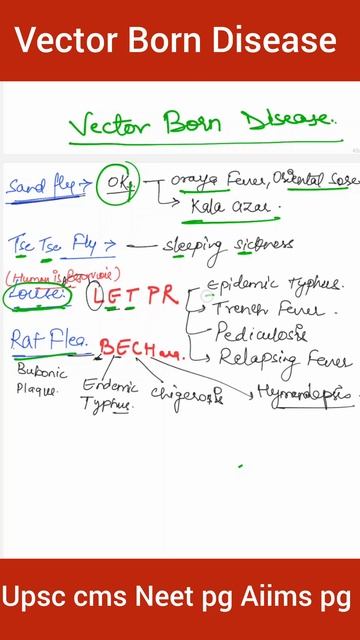 Vector Born Disease
Vector Born Disease.
Sand fly → OK → oraya Fever, Oriental Sore
→ Kala azar.
Tse Tse Fly → — sleeping sickness
(Human is Reservoir)
Louse: LET PR Epidemic Typhus.
→ Trench Fever.
Pediculosis
→ Relapsing Fever
Rat Flea. BECH
Bubonic Plaque.
Endemic Typhus
chigerosis
→ Hymenolepsis
Upsc cms Neet pg Aiims pg